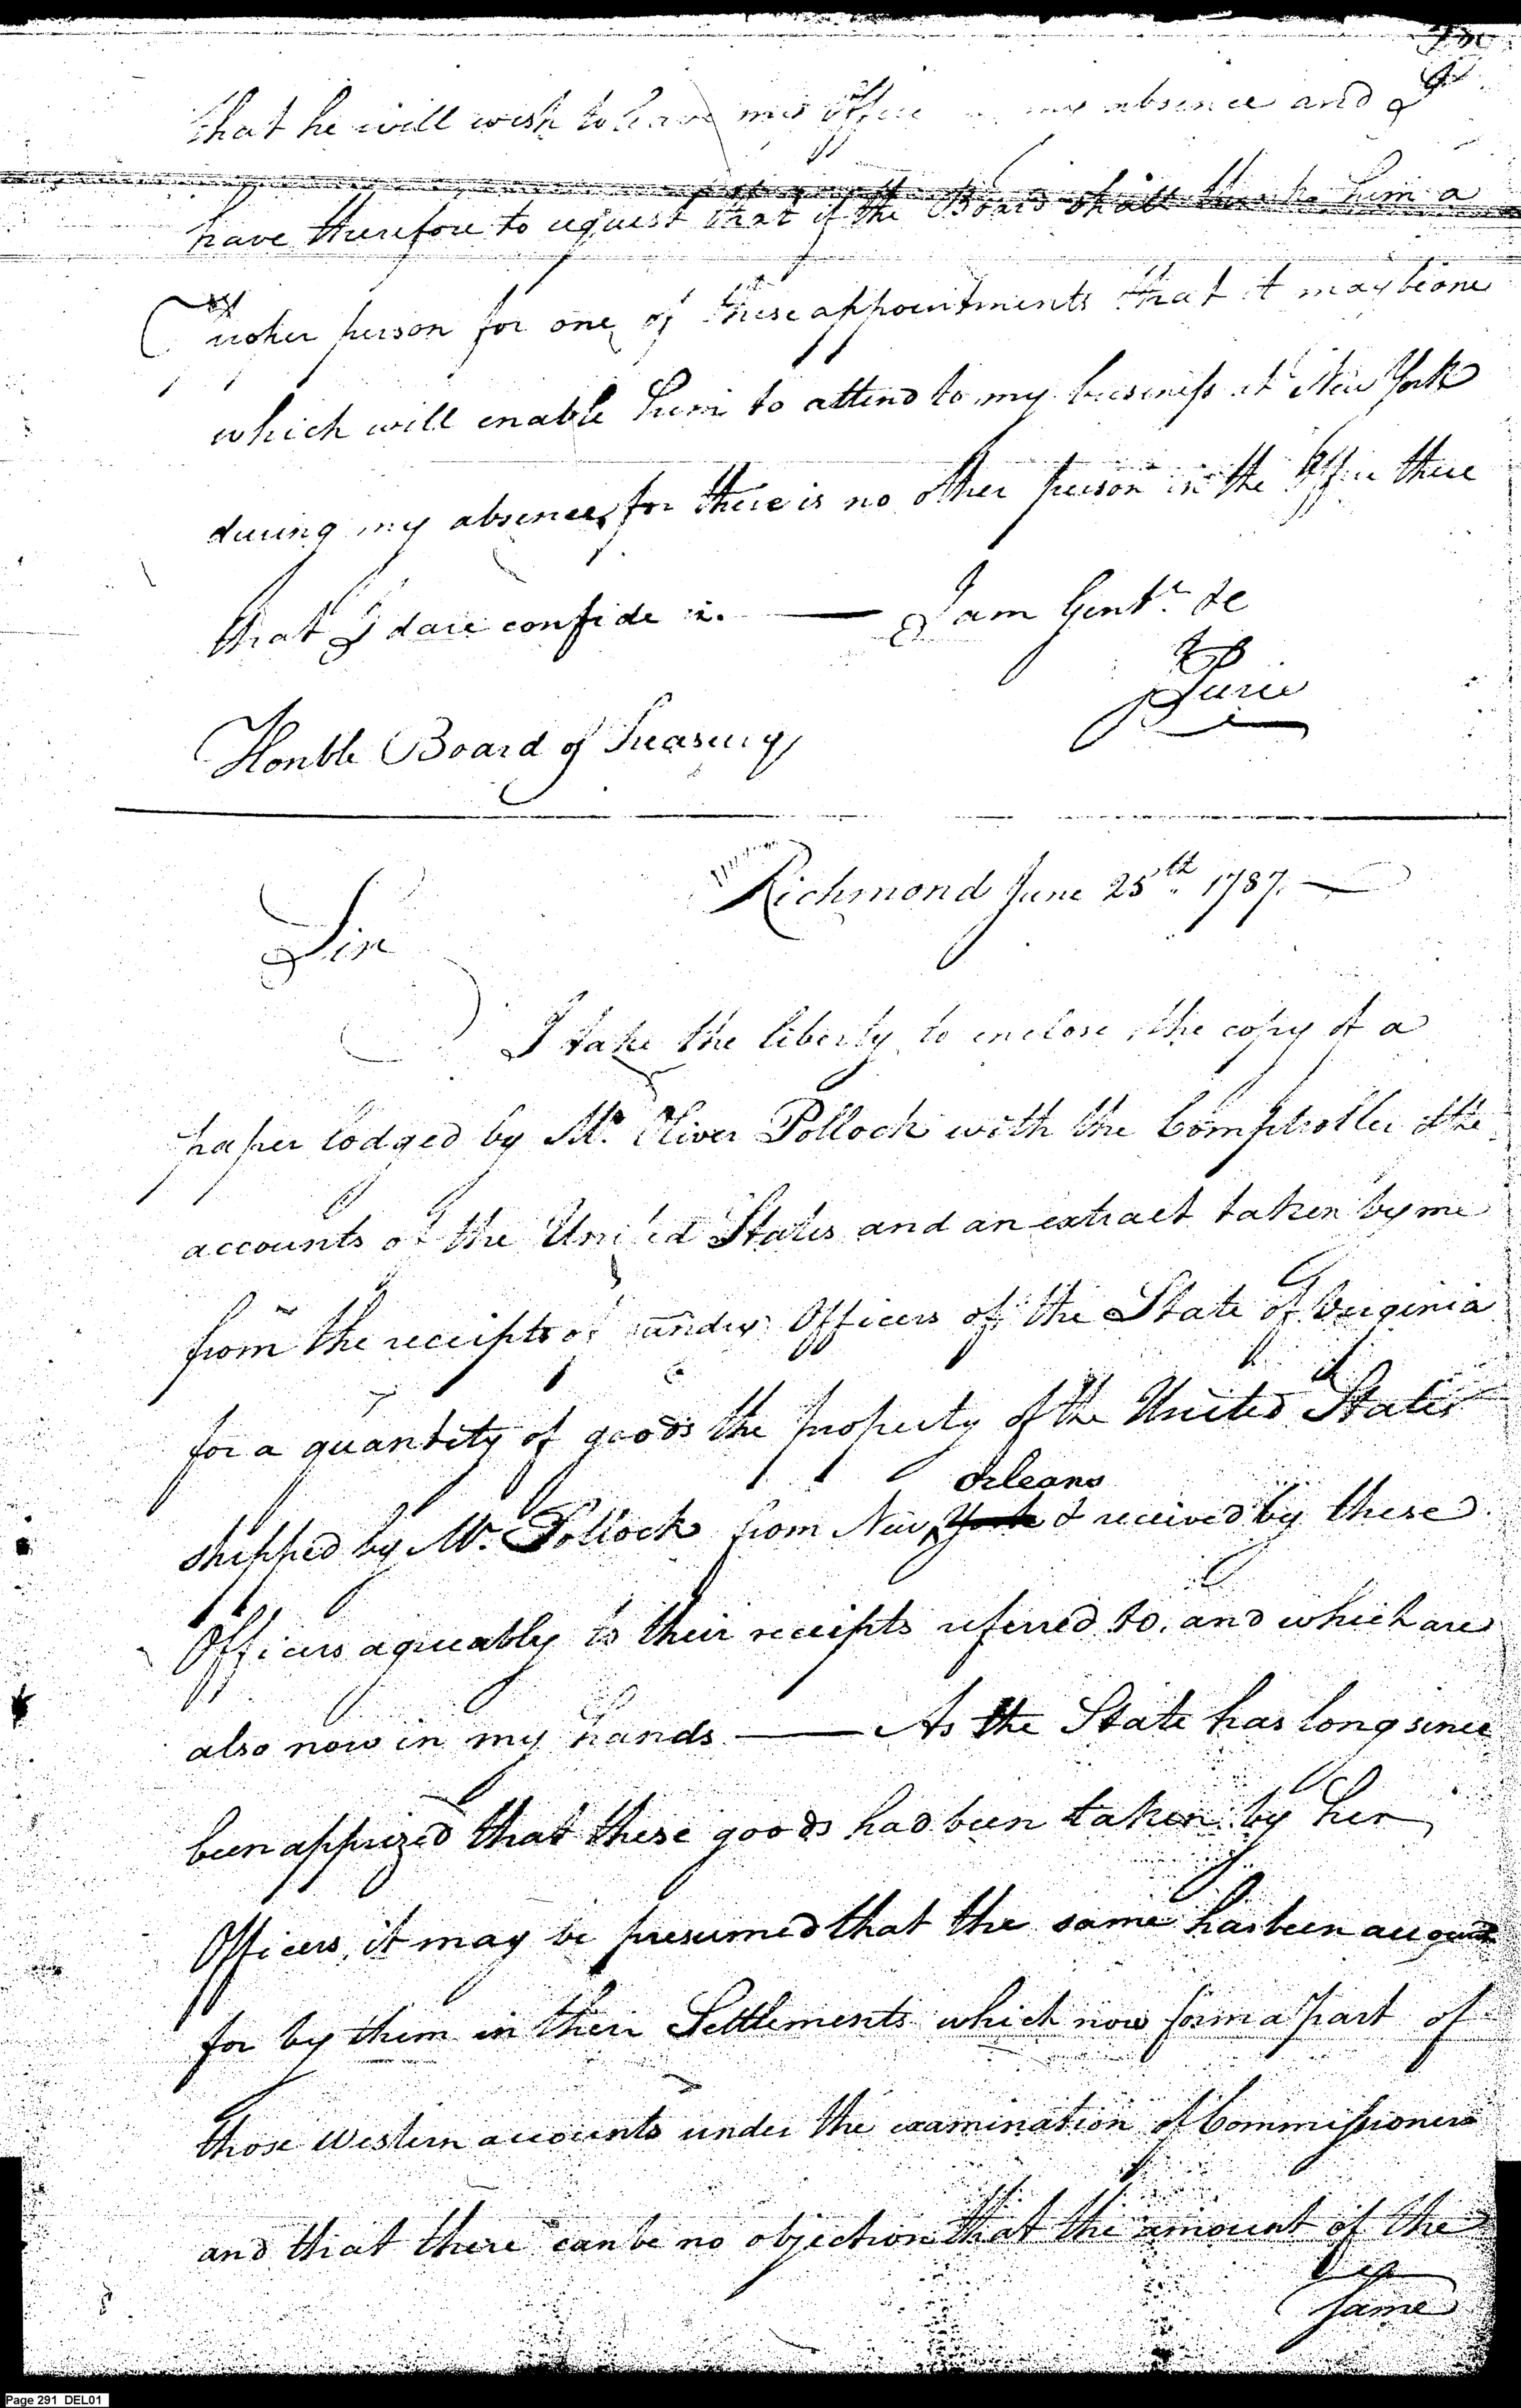 that he will wish to leave my Office in my absence and I
have therefore to request that if the Board shall think him a
proper person for one of these appointments that it may be one
which will enable him to attend to my business at New York
during my absence, for there is no other person in the Office there
that I dare confide in. — I am Gentn. &c
Honble Board of Treasury
Richmond June 25th. 1787. —
Sir
I take the liberty to enclose the copy of a
paper lodged by Mr. Oliver Pollock with the Comptroller of the
accounts of the United States and an extract taken by me
from the receipts of sundry Officers of the State of Virginia
for a quantity of goods the property of the United States
shipped by Mr. Pollock from New York Orleans & received by these
Officers agreeably to their receipts referred to, and which are
also now in my hands — As the State has long since
been apprized that these goods had been taken by her
Officers, it may be presumed that the same has been account
for by them in their Settlements which now form a part of
those Western accounts under the examination of Commissioners
and that there can be no objection that the amount of the
same
Page 291 DEL01